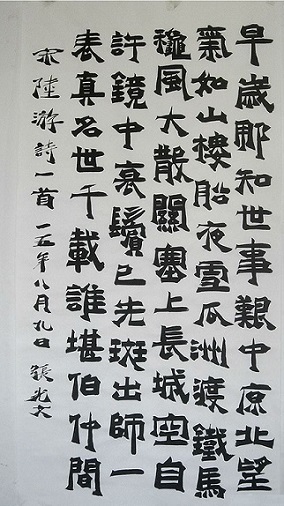 早歲那知世事艱中原北望
氣如山樓船夜雪瓜洲渡鐵馬
穐風大散關塞上長城空自
許鏡中衰鬢已先斑出師一
表真名世千載誰堪伯仲間
宋陸游詩一首 一五年八月九日 張